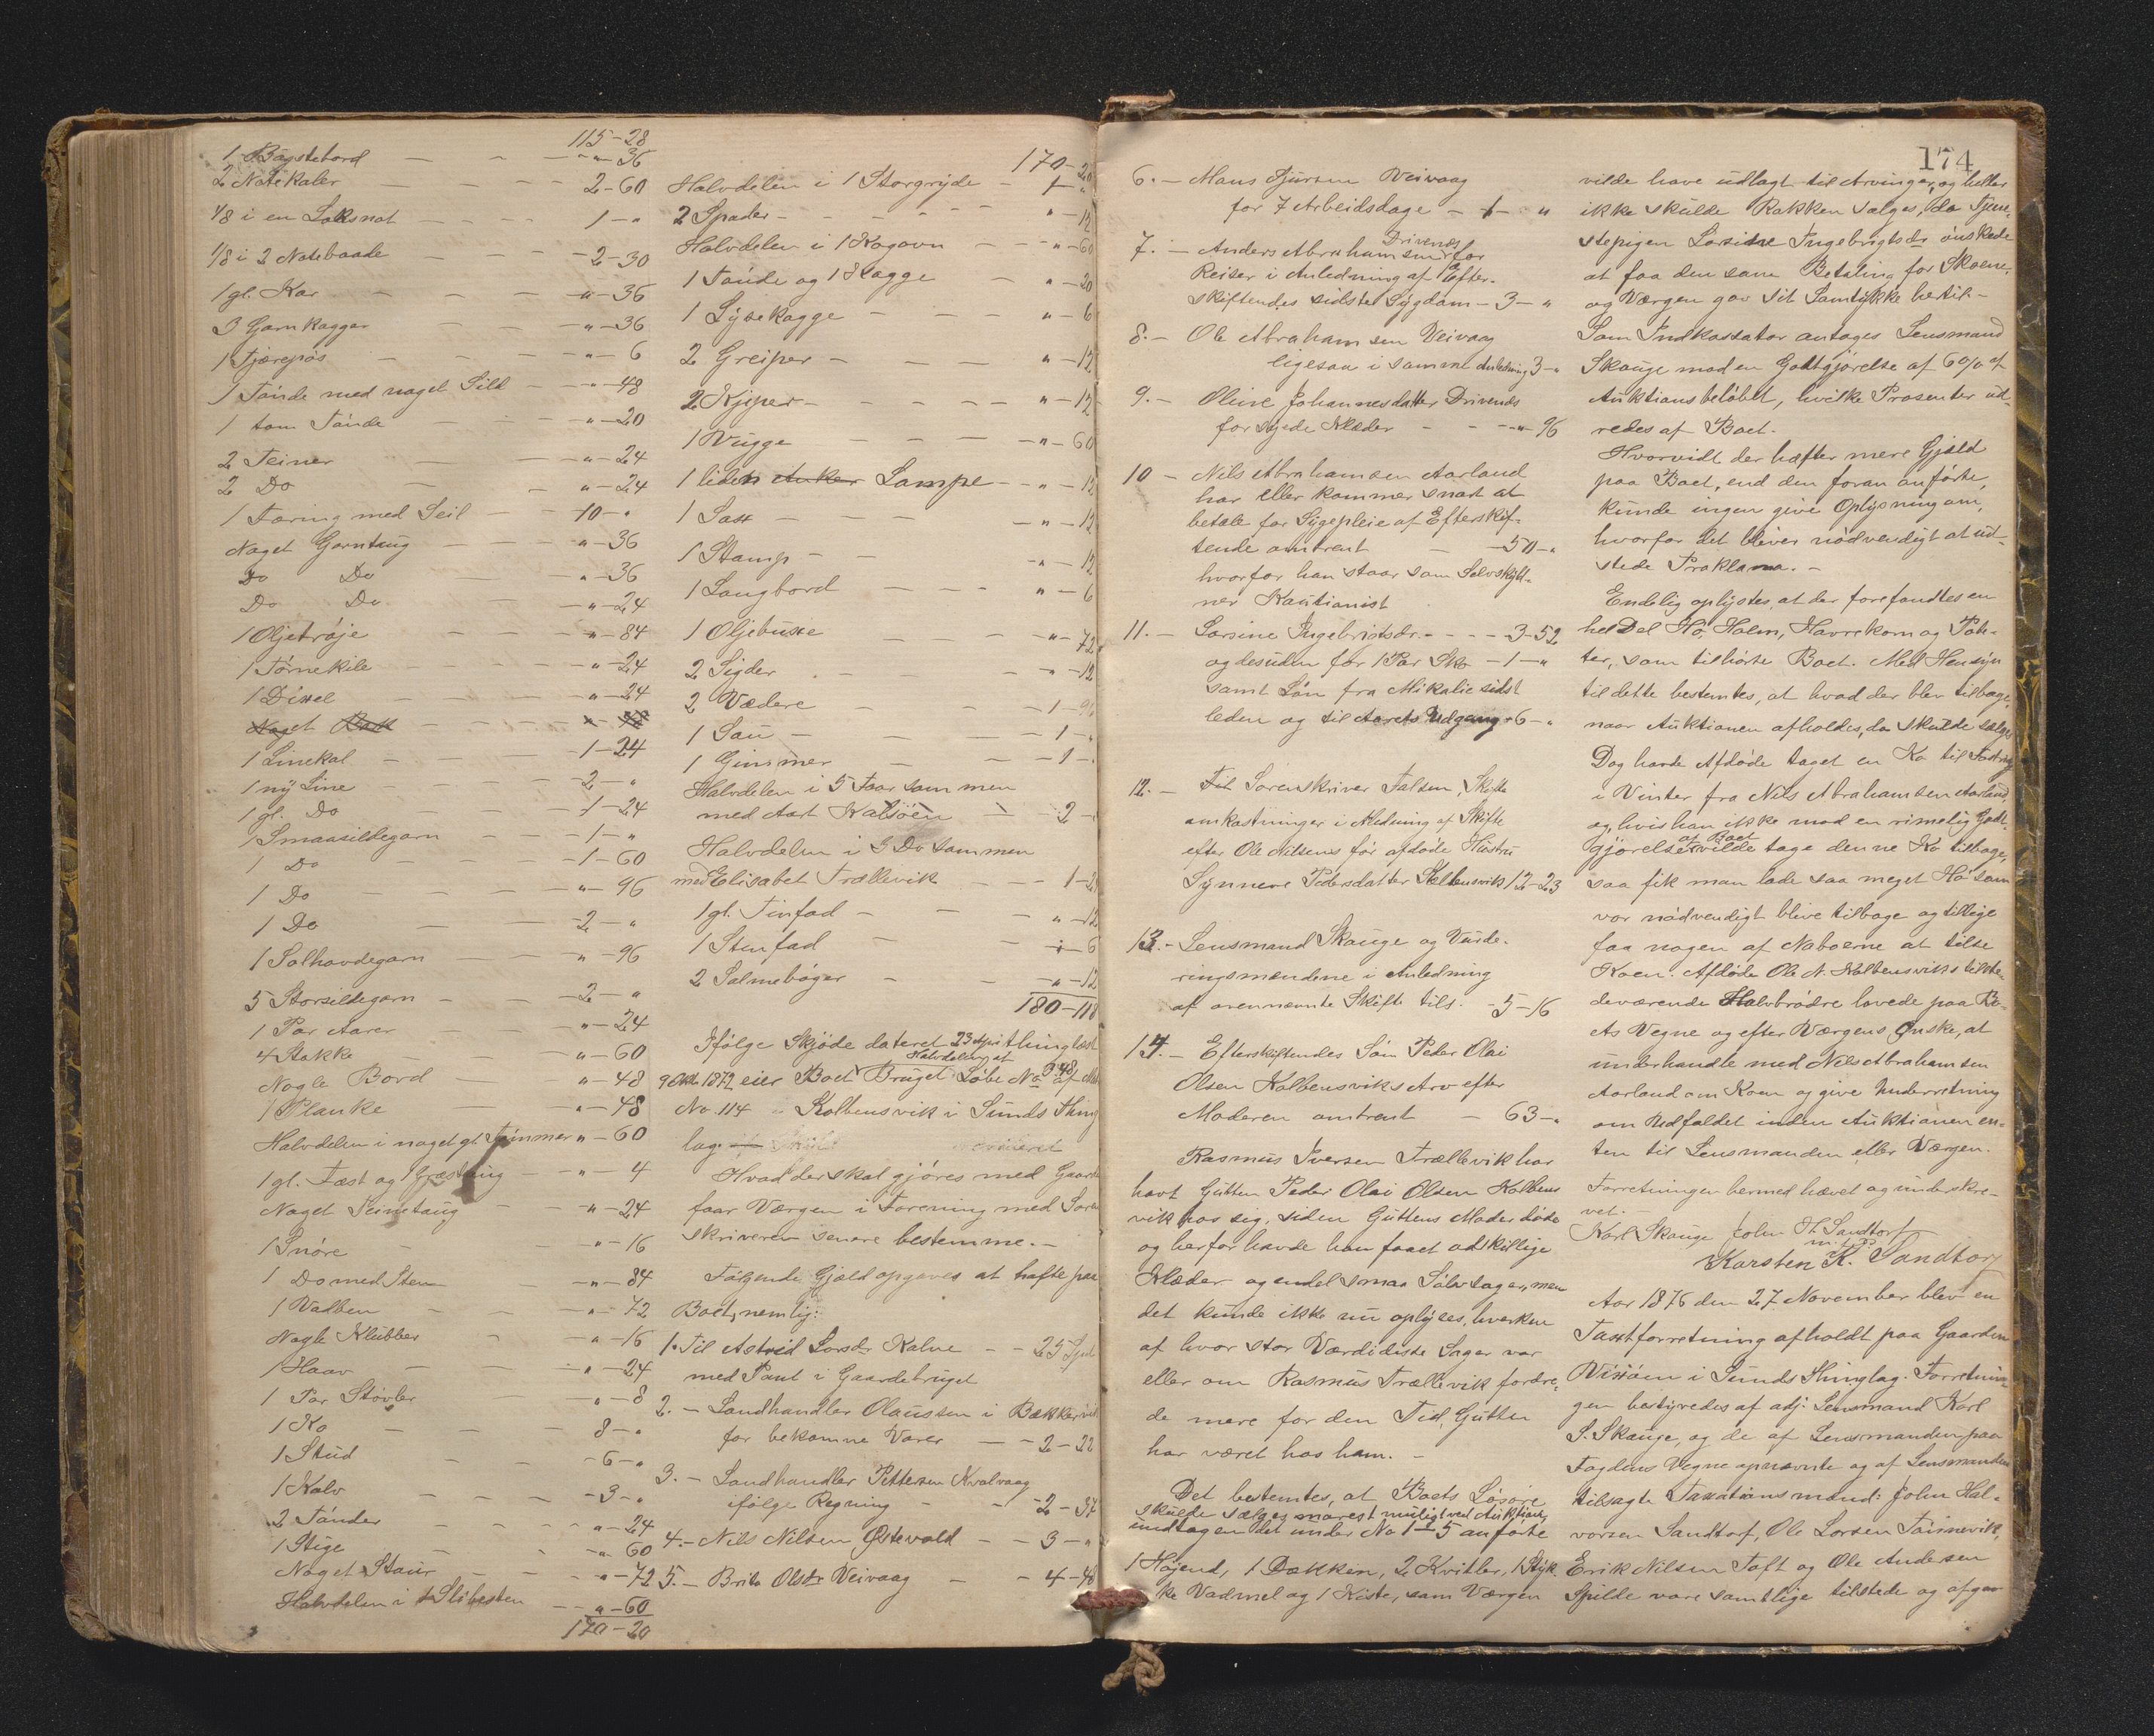 115-28
1 Bagstebord — — — „-36
2 Notekaler — — 2-60
1/8 i en Laksnot — — — 1-„
1/8 i 2 Notebaade — — — 2-30
1 gl. Kar — — — „-36
3 Garnkagger — — — „-36
1 Tjærepøs — — — „-6
1 Tønde med noget Sild — „-48
1 tom Tønde — — „-20
2 Teiner — — „-24
2 Do — — „-24
1 Færing med Seil — — 10-„
Noget Garntaug — — — „-36
Do Do — — „-36
Do Do — — „-24
1 Oljetrøje — — — „-84
1 Tørnekile — — — „-24
1 Dixel — — — „-24
Noget
1 Linekal — — — 1-24
1 ny Line — — — 2-„
1 gl. Do — — — 1-24
1 Smaasildegarn — — 1-„
1 Do — — — 1-60
1 Do — — „-96
1 Do — — 2-„
1 Salhovdegarn — — „-96
5 Storsildegarn — — 2-„
1 Par Aarer — — „-24
4 Stokke — — „-60
Nogle Bord — — „-48
1 Planke — — „-48
Halvdelen i noget gl. Tømmer „-60
1 gl. Fæst og 1 Græstaug — „-4
Noget Seinetaug — — „-24
1 Snøre — — „-16
1 Do med Sten — — „-84
1 Vadben — — „-72
Nogle Klubber — „-16
1 Haav — — „-24
1 Par Støvler — „-8
1 Ko — — — 8-„
1 Stud — — 6-„
1 Kalv — — — 3-„
2 Tønder — — — „-24
1 Stige — — „-60
Noget Staur — — „-72
Halvdelen i 1 Slibesten — „-60
170-20
170-20
Halvdelen i 1 Storgryde — 1-„
2 Spader — — — „-12
Halvdelen i 1 Kogovn — — „-60
1 Tønde og 1 Kagge — „-20
1 Lysekagge — — „-6
2 Greiper — — „-12
2 Kjiper — — — — „-12
1 Vugge — — — „-60
1 liden Anker Lampe — „-12
1 Sax — — — „-12
1 Stamp — — „-12
1 Langbord — — — „-6
1 Oljebuxe — — — „-72
2 Sigder — — „-12
2 Vædere — — 1-96
1 Sau — — — 1-„
1 Gimmer — — 1-„
Halvdelen i 5 Faar sammen
med Aat Kalsøen — 2-
Halvdelen i 3 Do sammen
med Elisabet Trællevik — — 1-2
1 gl. Tinfad — — „-12
1 Stenfad — — „-6
2 Salmebøger — — „-12
180-118
Ifølge Skjøde dateret 23 April thinglæst
Halvdelen af 348
9 Oktbr 1872 eier Boet Bruget Løbe No af Mat
No. 114 i Kolbensvik i Sunds Thing
lag
Hvad der skal gjøres med Gaarde
faar Værgen i Forening med Soren
skriveren senere bestemme. —
Følgende Gjæld opgaves at hafte paa
Boet, nemlig:
1. Til Astrid Larsdr Kalve — 25 Spd
med Pant i Gaardebruget
2. — Landhandler Olaussen i Bækkervik
for bekomne Varer — 2-22
3. — Landhandler Pettersen Kvalvaag
ifølge Regning — — 2-37
4. — Nils Nilsen Østevold — — 3-„
5. — Brita Olsdr Veivaag — 4-48
174
6. — Mons Sjursen Veivaag
for 7 Arbeidsdage — 1-„
Drivenæs
7. — Anders Abrahamsen for
Reiser i Anledning af Efter-
skiftendes sidste Sygdom — 3-„
8. — Ole Abrahamsen Veivaag
ligesaa i samme Anledning 3-„
9. — Oline Johannesdatter Drivenæs
for syede Klæder — — „-96
10 — Nils Abrahamsen Aarland
har eller kommer snart at
betale for Sygepleie af Efterskif-
tende omtrent — 50-„
hvorfor han staar som Selvskyld-
ner Kautionist
11. — Larsine Ingebrigtsdr. — — 3-52
og desuden for 1 Par Sko — 1-„
samt Løn fra Mikalie sidst
leden og til Aarets Udgang - 6-„
12. — Til Sorenskriver Falsen, Skifte
omkostninger i Anledning af Skifte
efter Ole Nilsens før afdøde Hustru
Synneve Pedersdatter Kolbensvik 12-23
13. — Lensmand Skauge og Vurde-
ringsmændene i Anledning
af ovennævnte Skifte tils. — 5-16
14. — Efterskiftendes Søn Peder Olai
Olsen Kolbensviks Arv efter
Moderen omtrent — 63-„
Rasmus Iversen Trællevik har
havt Gutten Peder Olai Olsen Kolbens
vik hos sig, siden Guttens Moder døde
og herfor havde han faaet adskillige
Klæder og endel smaa Sølvsager, men
det kunde ikke nu oplyses, hverken
af hvor stor Værdi disse Sager var
eller om Rasmus Trællevik fordre-
de mere for den Tid, Gutten
har været hos ham. —
Det bestemtes, at Boets Løsøre
skulde sælges snarest muligt ved Auktion,
undtagen det under No 1-5 anførte
1 Høiend, 1 Dækken, 2 Kvitler, 1 Styk-
ke Vadmel og 1 Kiste, som Værgen
vilde have udlagt til Arvinger, og heller
ikke skulde Rokken sælges, da Tjene-
stepigen Larsine Ingebrigtsdr ønskede
at faa den som Betaling for Skoene,
og Værgen gav sit Samtykke hertil. —
Som Indkassator antoges Lensmand
Skauge mod en Godtgjørelse af 6 % af
Auktionsbeløbet, hvilke Prosenter ud-
redes af Boet.
Hvorvidt der hæfter mere Gjæld
paa Boet, end den foran anførte,
kunde ingen give Oplysning om,
hvorfor det bliver nødvendigt at ud-
stede Proklama. —
Endelig oplystes, at der forefandtes en
hel Del Hø, Halm, Havrekorn og Pote-
ter, som tilhørte Boet. Med Hensyn
til dette bestemtes, at hvad der blev tilbage,
naar Auktionen afholdes, da skulde sælges
Dog havde Afdøde taget en Ko til Fostring
i Vinter fra Nils Abrahamsen Aarland,
og, hvis han ikke mod en rimelig Godt-
af Boet
gjørelse vilde tage denne Ko tilbage,
saa fik man lade saa meget Hø som
var nødvendigt blive tilbage og tillige
faa nogen af Naboerne at tilse
Koen. Afdøde Ole N. Kolbensviks tilste-
deværende Halvbrødre lovede paa Bo-
ets Vegne og efter Værgens Ønske, at
underhandle med Nils Abrahamsen
Aarland om Koen og give Underretning
om Udfaldet inden Auktionen en-
ten til Lensmanden eller Værgen.
Forretningen hermed hævet og underskre-
vet.
Karl Skauge John H. Sandtorf
m. p. P.
Karsten K. Sandtorf
Aar 1876 den 27 November blev en
Taxtforretning afholdt paa Gaarden
Vixøen i Sunds Thinglag. Forretnin-
gen bestyredes af adj: Lensmand Karl
S. Skauge, og de af Lensmanden paa
Fogdens Vegne opnævnte og af Lensmanden
tilsagte Taxationsmænd: John Hal-
vorsen Sandtorf, Ole Larsen Tønnevik,
Erik Nilsen Toft og Ole Andersen
Spilde vare samtlige tilstede og afgav